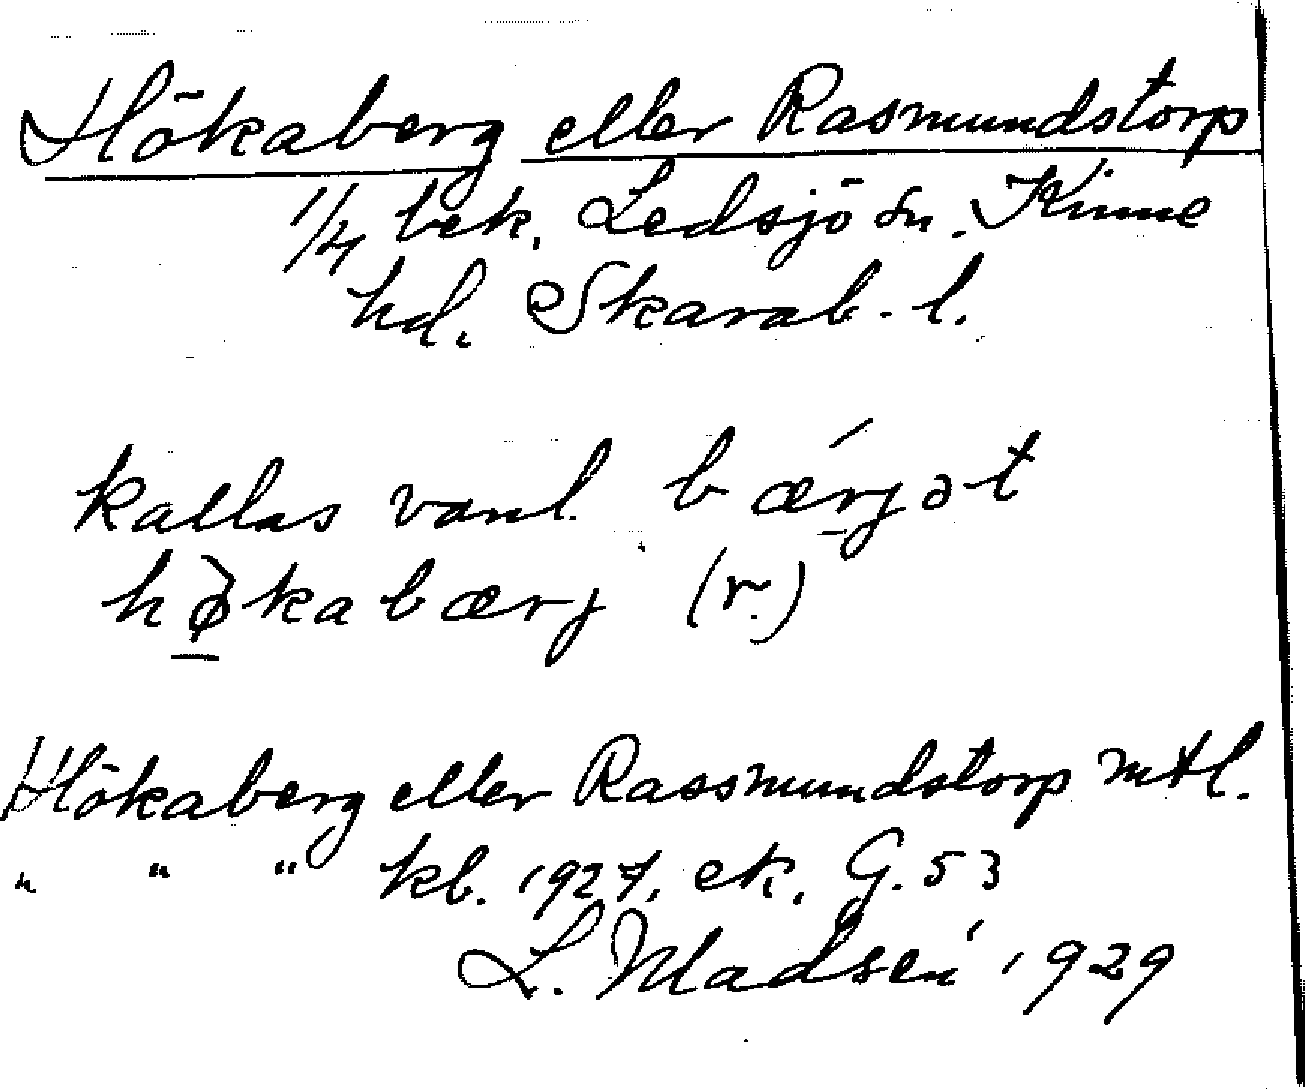 Hökaberg eller Rasmundstorp
1/4 bek. Ledsjö sn. Kinne
hd. Skarab. l.
kallas vanl. bærjət
hø̀kabærj (r.)
Hökaberg eller Rassmundstorp mtl.
" " " kb. 1927, ek. G. 53
L. Madsén 1929